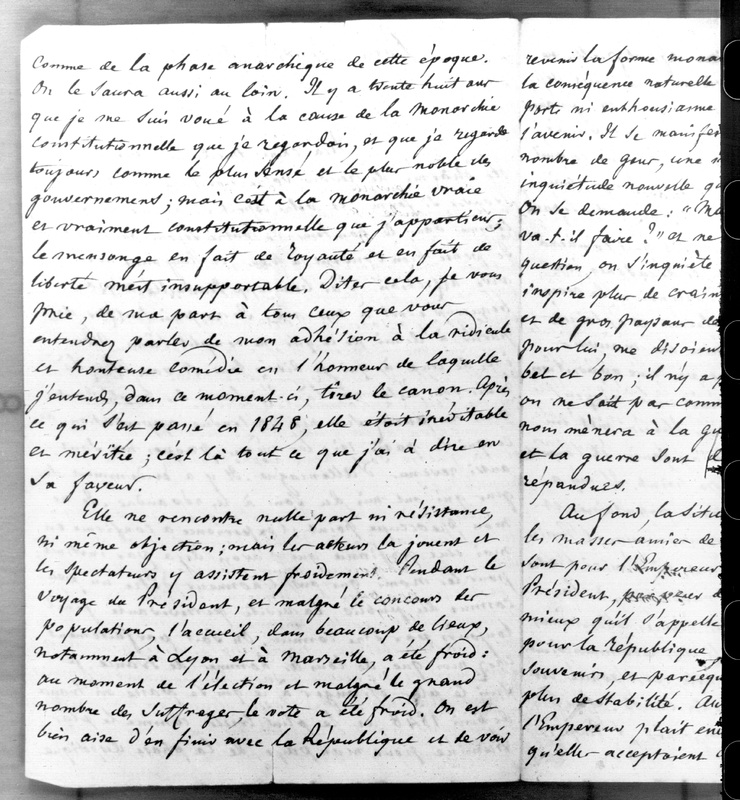 comme de la phase anarchique de cette époque.
On le saura aussi au loin. Il y a trente huit ans
que je me suis voué à la cause de la monarchie
constitutionnelle que je regardais, et que je regarde
toujours comme le plus sensé et le plus noble des
gouvernemens ; mais c'est à la monarchie vraie
et vraiment constitutionnelle que j'appartiens ;
le mensonge en fait de royauté et en fait de
liberté m'est insupportable. Dites cela, je vous
prie, de ma part à tous ceux que vous
entendrez parler de mon adhésion à la ridicule
et honteuse comédie en l'honneur de laquelle
j'entends, dans ce moment-ci, tirer le canon. Après
ce qui s'est passé en 1848, elle était inévitable
et méritée ; c'est là tout ce que j'ai à dire en
sa faveur
Elle ne rencontre nulle part ni résistance,
ni même objection ; mais les acteurs la jouent et
les spectateurs y assistent froidement. Pendant le
voyage du Président, et malgré le concours des
populations, l'accueil, dans beaucoup de lieux,
notamment à Lyon et à Marseille, a été froid :
au moment de l'élection et malgré le grand
nombre des suffrages, le vote a été froid. On est
bien aise d'en finir avec la République et de voir
revenir la forme mona
la conséquence naturelle
porte ni enthousiasme
l'avenir. Il se manifes
nombre de gens, une
inquiétude nouvelle qu
On se demande : "Ma
va-t-il faire ?" et ne
question, on s'inquiète
inspire plus de crain
et de gros paysans de
pour lui, me disoient
bel et bon ; il n'y a p
on ne sait pas comm
nous mènera à la gu
et la guerre sont d
répandues.
Au fond, la situ
les masses amies de
sont pour l'Empereur
Président, de
mieux qu'il s'appelle
pour la République
souvenirs, et parcequ
plus de stabilité. Au
l'Empereur plait en
qu'elles acceptoient